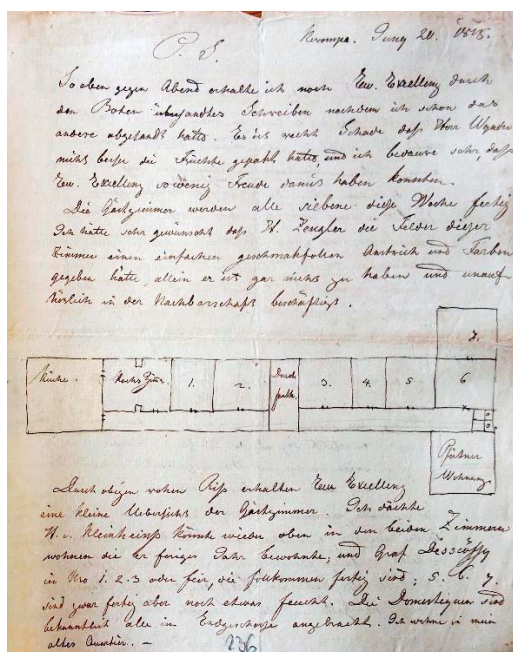 P. S.
Korompa. Juny 20. 1815.
So eben gegen Abend erhalte ich noch Euw. Excellenz durch
den Boten übersandtes Schreiben nachdem ich schon das
andere abgesandt hatte. Es ist recht Schade daß Herr
nicht besser die Früchte gepakt hatte, und ich bedaure sehr, daß
Euw. Excellenz so wenig Freude damit haben konnten.
Die Gästzimmer werden alle siebene diese Woche fertig
Ich hätte sehr gewünscht daß H. Zengler die Felder dieser
Zimmer einen einfachen geschmakfollen Anstrich und Farben
gegeben hätte, allein er ist gar nicht zu haben und unauf-
hörlich in der Nachbarschaft beschäftigt.
7.
Küche.
1.
2.
Durch
3.
4.
5
6
Pfistner
Wohnung
Durch obigen rohen Riß erhalten Euw Excellenz
eine kleine Uebersicht der Gästzimmer. Ich dächte
H. v. Kleinheinß könnte wieder oben in den beiden Zimmern
wohnen die er foriges Jahr bewohnte, und Graf Dessöffy
in Nro 1. 2. 3 oder fier, die follkommen fertig sind; 5. 6. 7.
sind zwar fertig aber noch etwas feucht. Die Domestiquen sind
bekanntlich alle im Erdgeschosse angebracht. Ich wohne in mein
altes Quartier. –
236